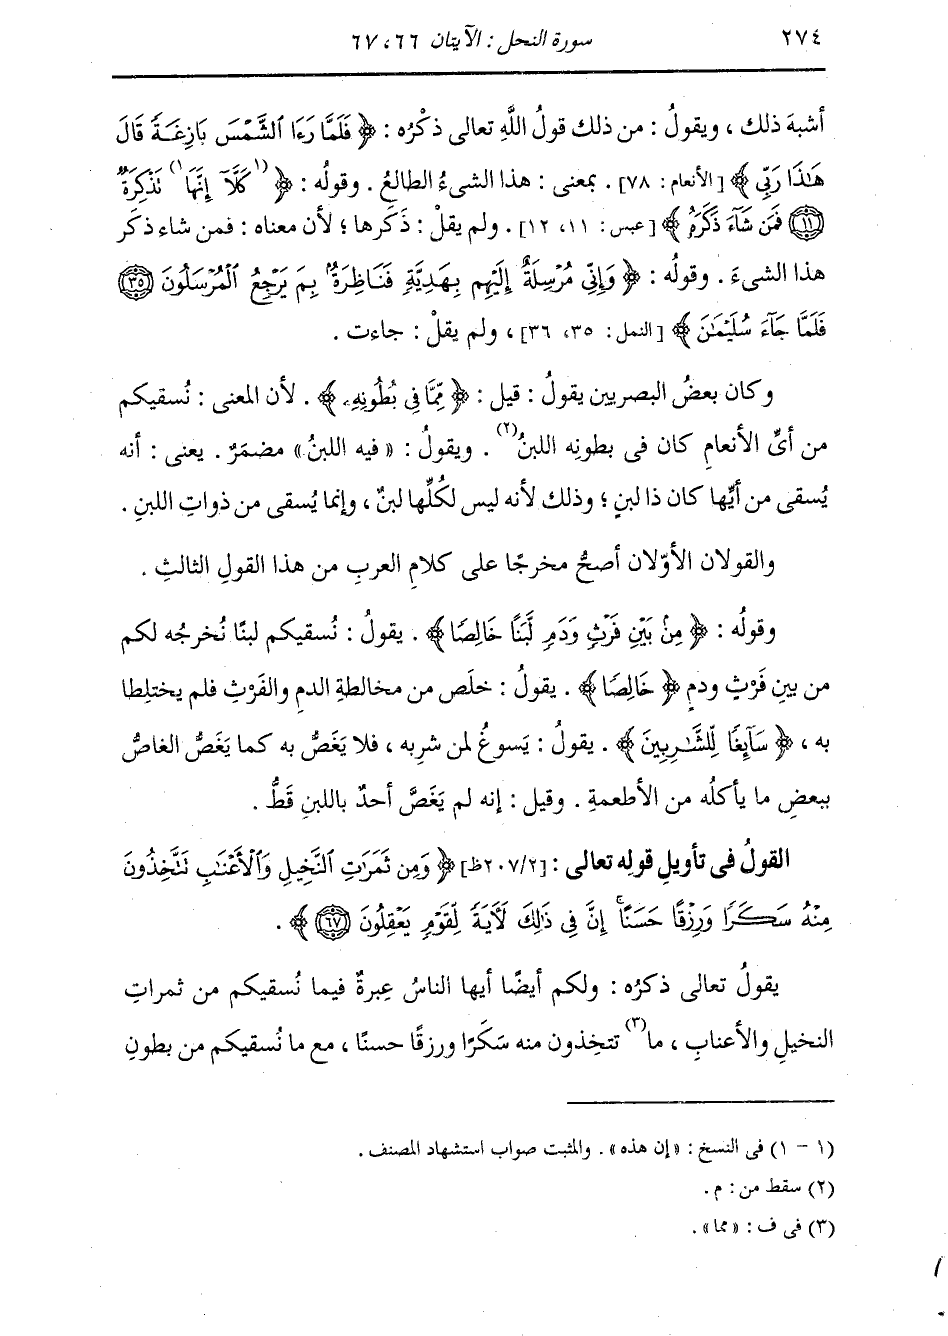 ٢٧٤ سورة النحل : الآيتان ٦٦ ، ٦٧
أشبهَ ذلك ، ويقولُ : من ذلك قولُ اللَّهِ تعالى ذكْرُه : ﴿ فَلَمَّا رَءَا ٱلشَّمْسَ بَازِغَةً قَالَ
هَٰذَا رَبِّى ﴾ [الأنعام : ٧٨] . بمعنى : هذا الشىءُ الطالعُ . وقولُه : ﴿ (١) كَلَّآ إِنَّهَا (١) تَذْكِرَةٌ
(١١) فَمَن شَآءَ ذَكَرَهُ ﴾ [عبس : ١١، ١٢] . ولم يقلْ : ذَكَرها ؛ لأن معناه : فمن شاء ذكَر
هذا الشىءَ . وقولُه : ﴿ وَإِنِّى مُرْسِلَةٌ إِلَيْهِم بِهَدِيَّةٍ فَنَاظِرَةٌۢ بِمَ يَرْجِعُ ٱلْمُرْسَلُونَ (٣٥)
فَلَمَّا جَآءَ سُلَيْمَٰنَ ﴾ [النمل : ٣٥، ٣٦] ، ولم يقلْ : جاءت .
وكان بعضُ البصريين يقولُ : قيل : ﴿ مِّمَّا فِى بُطُونِهِۦ ﴾ . لأن المعنى : نُسقيكم
من أىِّ الأنعامِ كان فى بطونِه اللبنُ (٢) . ويقولُ : « فيه اللبنُ » مضمَرٌ . يعنى : أنه
يُسقى من أيِّها كان ذا لبنٍ ؛ وذلك لأنه ليس لكُلِّها لبنٌ ، وإنما يُسقى من ذواتِ اللبنِ .
والقولان الأوّلان أصحُّ مخرجًا على كلامِ العربِ من هذا القولِ الثالثِ .
وقولُه : ﴿ مِنۢ بَيْنِ فَرْثٍ وَدَمٍ لَّبَنًا خَالِصًا ﴾ . يقولُ : نُسقيكم لبنًا نُخرجُه لكم
من بينِ فَرْثٍ ودمٍ ﴿ خَالِصًا ﴾ . يقولُ : خلَص من مخالطةِ الدمِ والفَرْثِ فلم يختلِطا
به ، ﴿ سَآئِغًا لِّلشَّٰرِبِينَ ﴾ . يقولُ : يَسوغُ لمن شرِبه ، فلا يَغَصُّ به كما يَغَصُّ الغاصُّ
ببعضِ ما يأكلُه من الأطعمةِ . وقيل : إنه لم يَغَصَّ أحدٌ باللبنِ قَطُّ .
القولُ فى تأويلِ قولِه تعالى : [٢٠٧/٢ظ] ﴿ وَمِن ثَمَرَٰتِ ٱلنَّخِيلِ وَٱلْأَعْنَٰبِ تَتَّخِذُونَ
مِنْهُ سَكَرًا وَرِزْقًا حَسَنًا ۗ إِنَّ فِى ذَٰلِكَ لَءَايَةً لِّقَوْمٍ يَعْقِلُونَ (٦٧) ﴾ .
يقولُ تعالى ذكرُه : ولكم أيضًا أيها الناسُ عِبرةٌ فيما نُسقيكم من ثمراتِ
النخيلِ والأعنابِ ، ما (٣) تتخِذون منه سَكَرًا ورزقًا حسنًا ، مع ما نُسقيكم من بطونِ
(١ - ١) فى النسخ : « إن هذه » . والمثبت صواب استشهاد المصنف .
(٢) سقط من : م .
(٣) فى ف : « مما » .